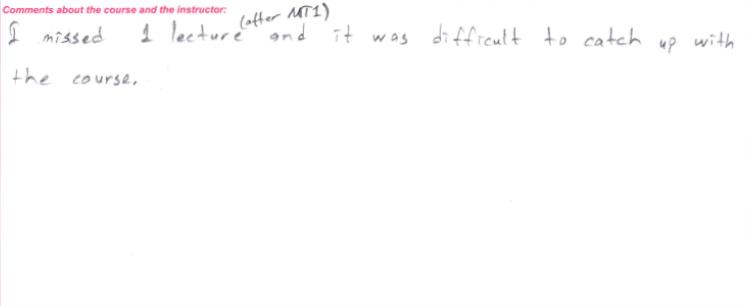 Comments about the course and the instructor:
(after MT1)
I missed 1 lecture and it was difficult to catch up with
the course.